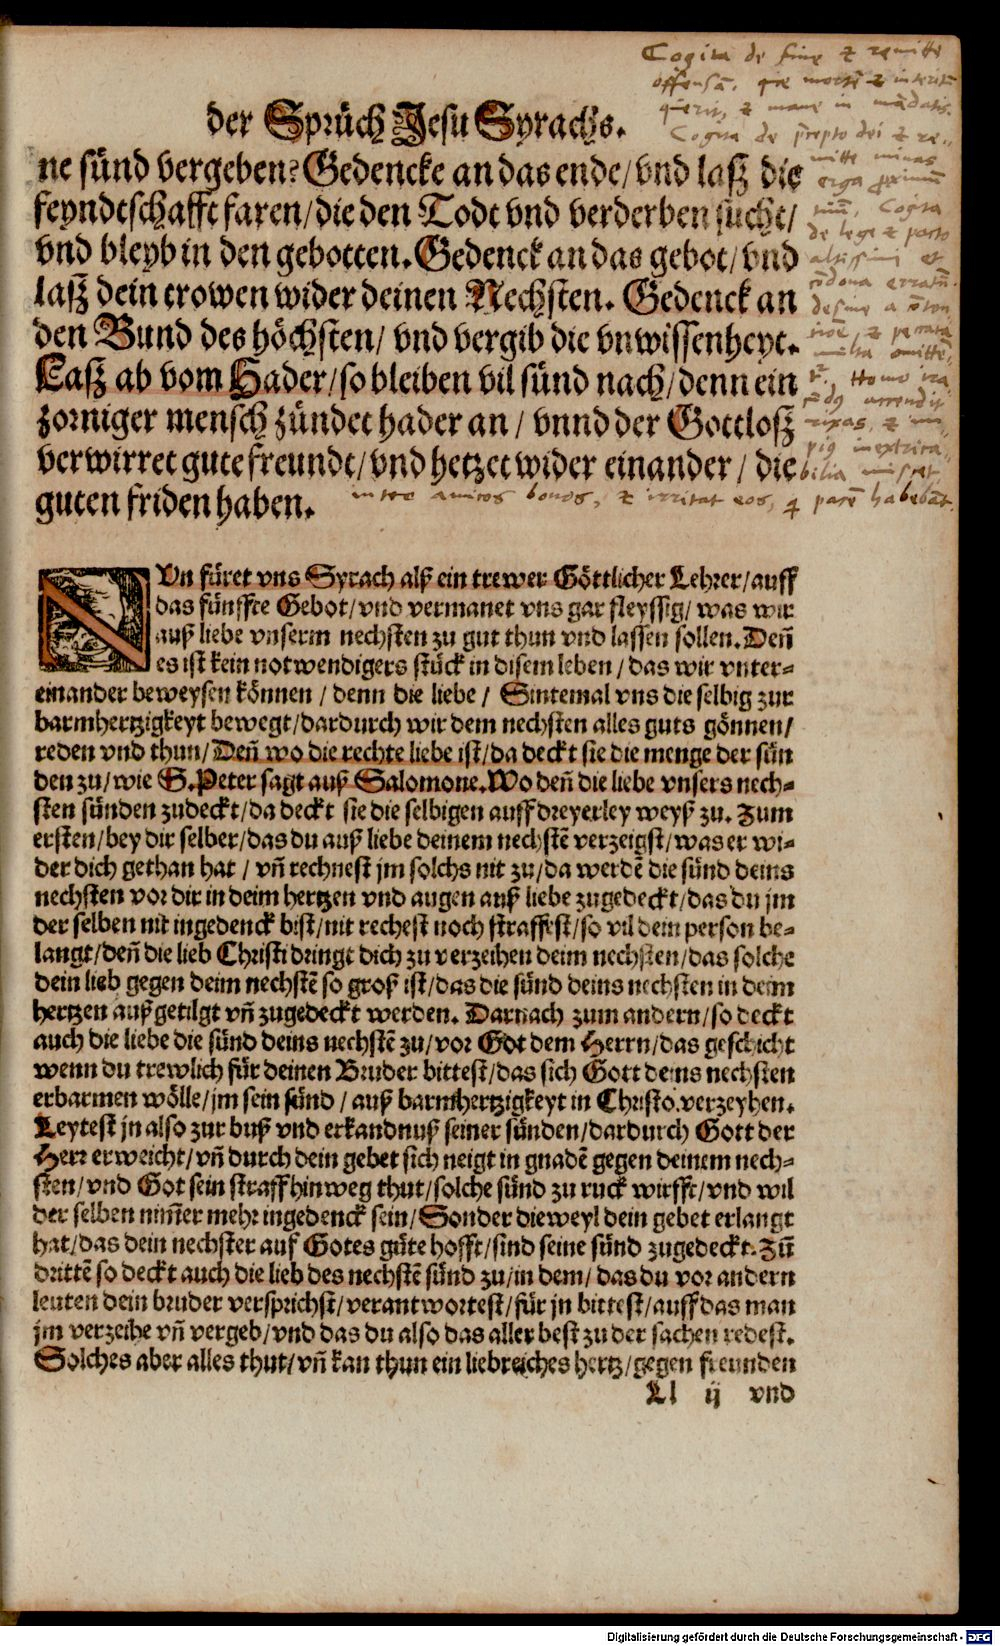 der Sprüch Jesu Syrachs.
ne sünd vergeben? Gedencke an das ende/ vnd lasz die
feyndtschafft faren/ die den Todt vnd verderben sucht/
vnd bleyb in den gebotten. Gedenck an das gebot/ vnd
lasz dein trowen wider deinen Nechsten. Gedenck an
den Bund des höchsten/ vnd vergib die vnwissenheyt.
Lasz ab vom Hader/ so bleiben vil sünd nach/ denn ein
zorniger mensch zündet hader an/ vnnd der Gottlosz
verwirret gute freundt/ vnd hetzet wider einander/ die
guten friden haben.
Cogita de fine & remitte
offensā, quæ mortē & interitū
quærit, & mane in mādatis.
Cogita de p̄cepto dei & re-
mitte minas
erga proximū
tuū, Cogita
de lege & pacto
altissimi et
cōdona erratū.
desine a cōten
tiōe, & peccata
multa omittē
tr, Homo ira
cūdꝰ accendit
rixas, & im
piꝰ inextrica-
bilia miscet
inter amicos bonos, & irritat eos, q pacē habebāt.
NUn füret vns Syrach alß ein trewer Göttlicher Lehrer/ auff
das fünffte Gebot/ vnd vermanet vns gar fleyssig/ was wir
auß liebe vnserm nechsten zu gut thun vnd lassen sollen. Deñ
es ist kein notwendigers stück in disem leben/ das wir vnter-
einander beweysen können/ denn die liebe/ Sintemal vns die selbig zur
barmhertzigkeyt bewegt/ dardurch wir dem nechsten alles guts gönnen/
reden vnd thun/ Deñ wo die rechte liebe ist/ da deckt sie die menge der sün
den zu/ wie S. Peter sagt auß Salomone. Wo deñ die liebe vnsers nech-
sten sünden zudeckt/ da deckt sie die selbigen auff dreyerley weyß zu. Zum
ersten/ bey dir selber/ das du auß liebe deinem nechstē verzeigst/ was er wi-
der dich gethan hat/ vñ rechnest jm solchs nit zu/ da werdē die sünd deins
nechsten vor dir in deim hertzen vnd augen auß liebe zugedeckt/ das du jm
der selben nit ingedenck bist/ nit rechest noch straffest/ so vil dein person be-
langt/ deñ die lieb Christi dringt dich zu verzeihen deim nechsten/ das solche
dein lieb gegen deim nechstē so groß ist/ das die sünd deins nechsten in deim
hertzen auß getilgt vñ zugedeckt werden. Darnach zum andern/ so deckt
auch die liebe die sünd deins nechstē zu/ vor Got dem Herrn/ das geschicht
wenn du trewlich für deinen Bruder bittest/ das sich Gott deins nechsten
erbarmen wölle/ jm sein sünd/ auß barmhertzigkeyt in Christo verzeyhen.
Leytest jn also zur buß vnd erkandnuß seiner sünden/ dardurch Gott der
Herr erweicht/ vñ durch dein gebet sich neigt in gnadē gegen deinem nech-
sten/ vnd Got sein straff hinweg thut/ solche sünd zu ruck wirfft/ vnd wil
der selben nim̄er mehr ingedenck sein/ Sonder dieweyl dein gebet erlangt
hat/ das dein nechster auf Gotes güte hofft/ sind seine sünd zugedeckt. Zū
drittē so deckt auch die lieb des nechstē sünd zu/ in dem/ das du vor andern
leuten dein bruder versprichst/ verantwortest/ für jn bittest/ auff das man
jm verzeihe vñ vergeb/ vnd das du also das aller best zu der sachen redest.
Solches aber alles thut/ vñ kan thun ein liebreiches hertz/ gegen freunden
Ll ij vnd
Digitalisierung gefördert durch die Deutsche Forschungsgemeinschaft - DFG